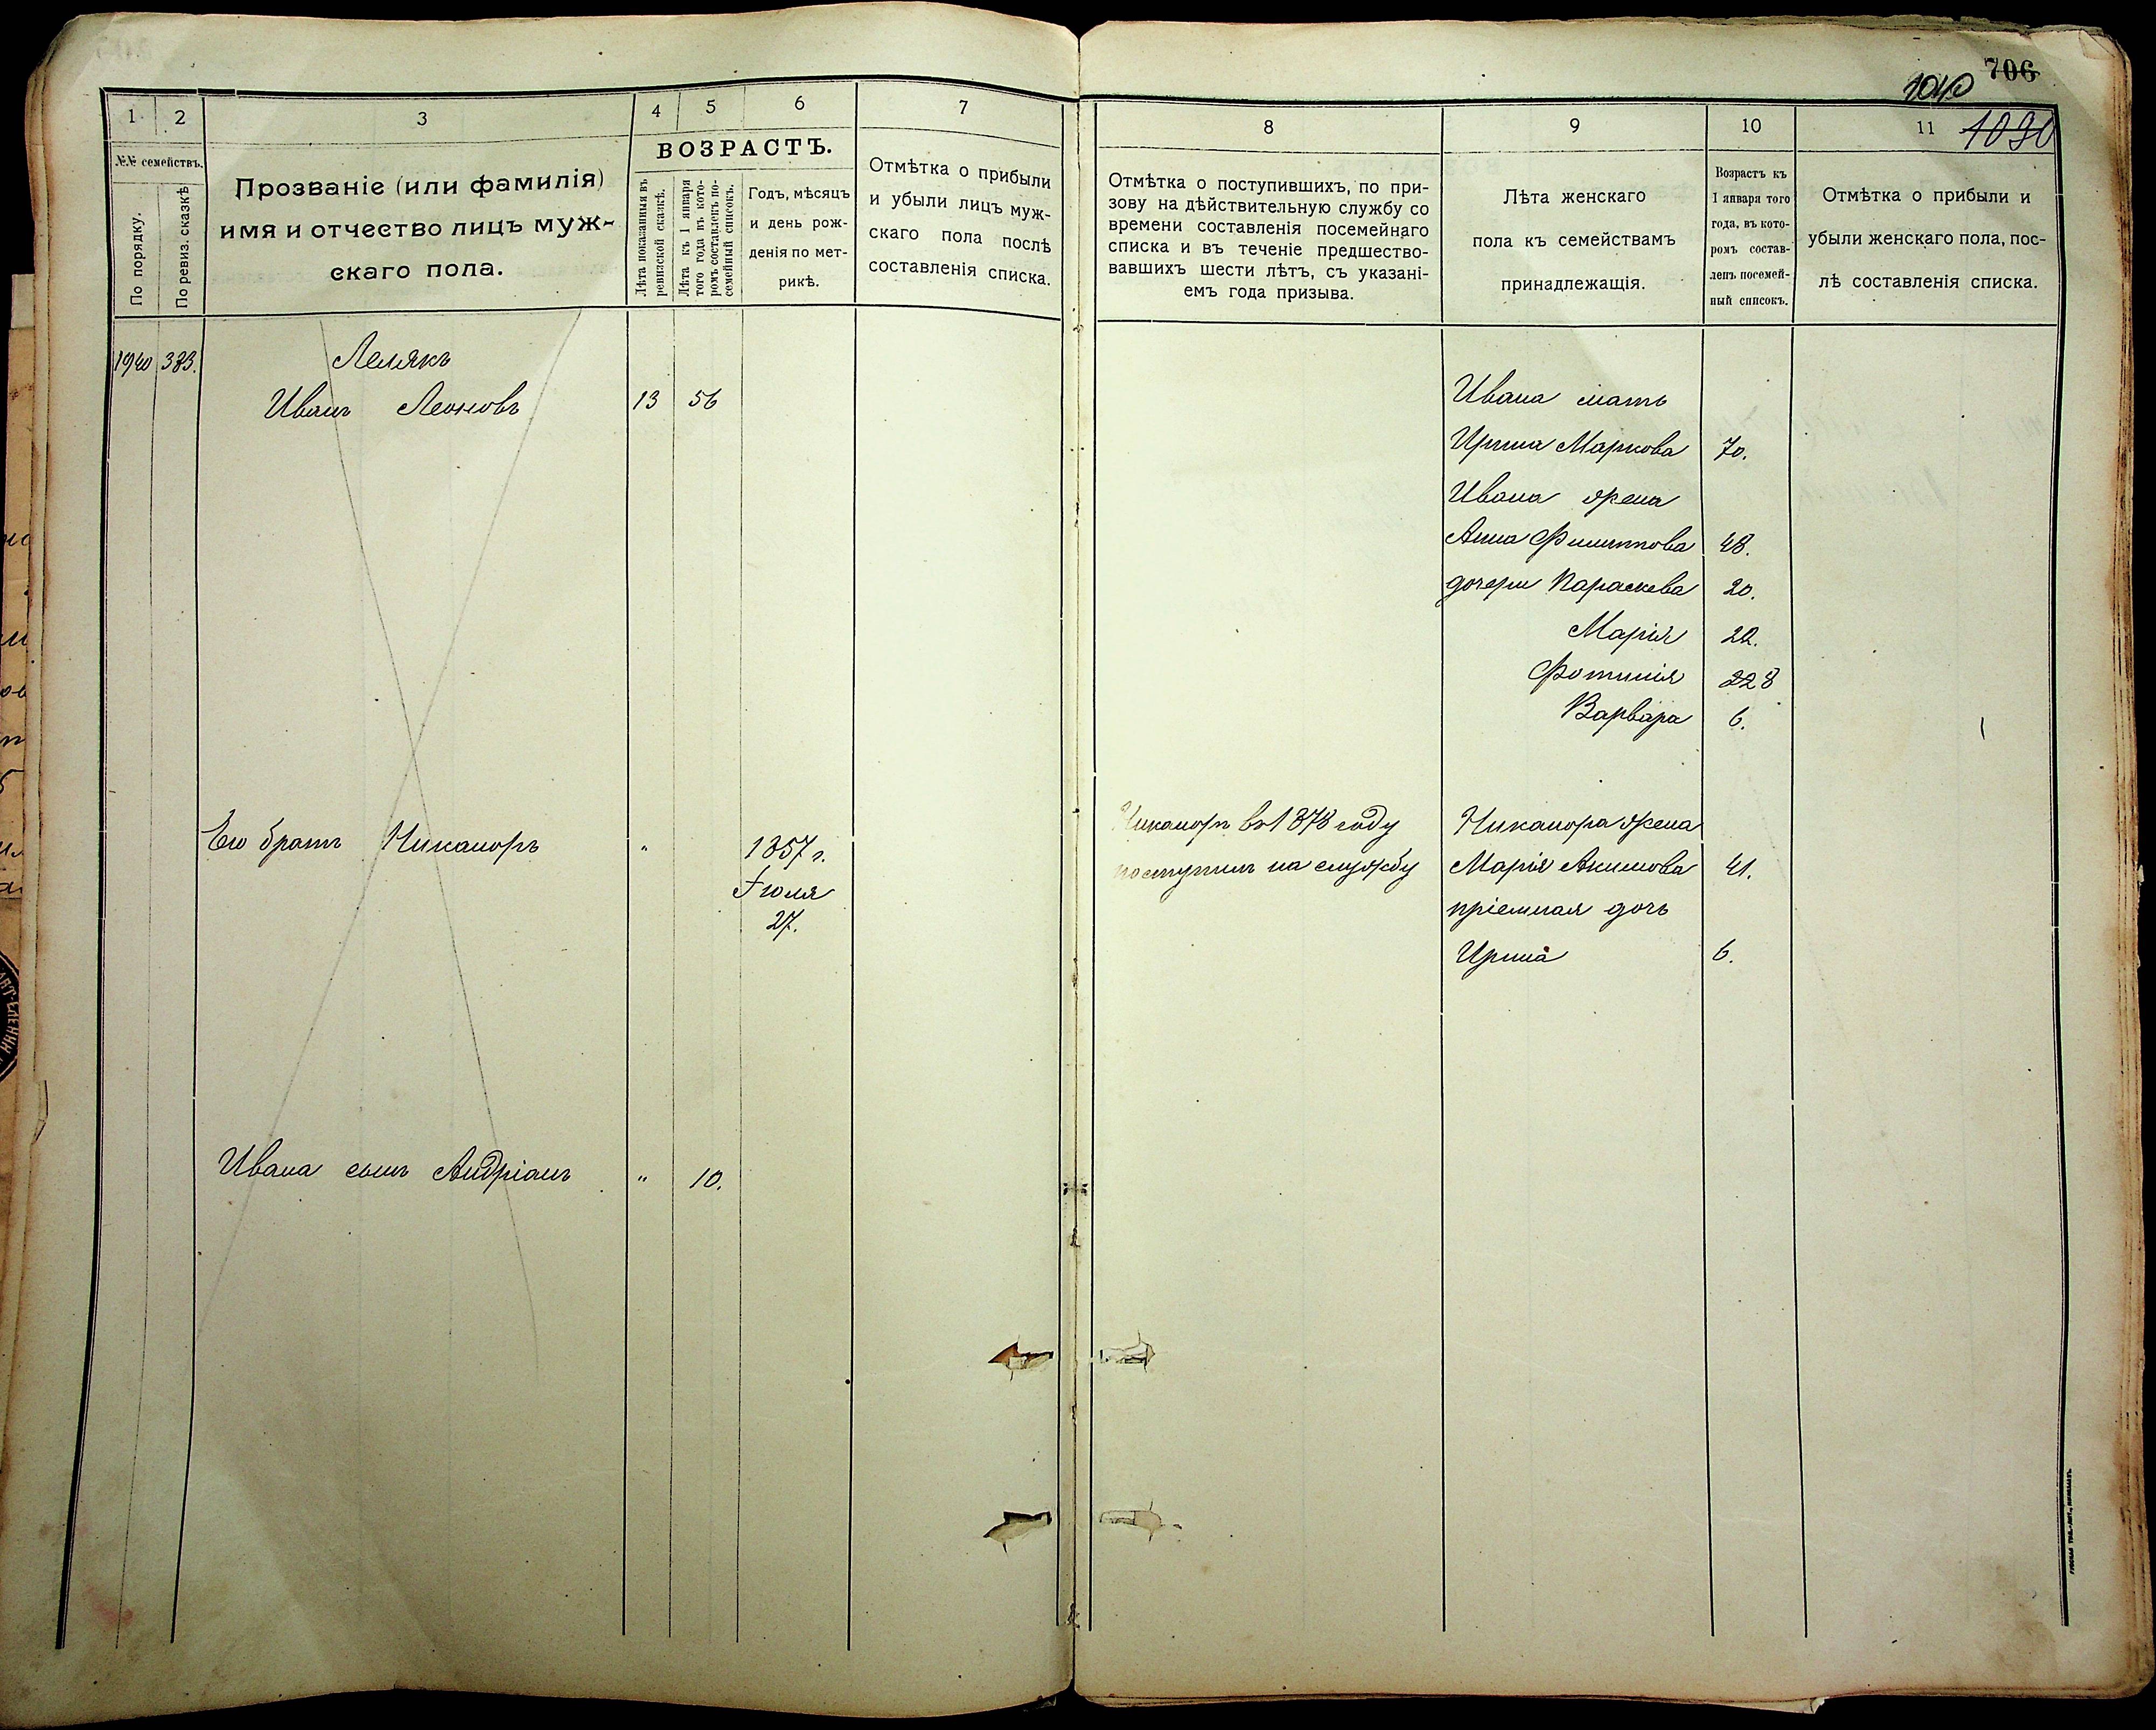 706
1040
1030
1
2
3
4
5
6
7
№№ семействъ.
По порядку.
По ревиз. сказкѣ
Прозваніе (или фамилія)
имя и отчество лицъ муж-
скаго пола.
ВОЗРАСТЪ.
Лѣта показанныя въ
ревизской сказкѣ.
Лѣта къ 1 января
того года въ кото-
ромъ составленъ по-
семейный списокъ.
Годъ, мѣсяцъ
и день рож-
денія по мет-
рикѣ.
Отмѣтка о прибыли
и убыли лицъ муж-
скаго пола послѣ
составленія списка.
1940 383.
Лелякъ
Иванъ Леоновъ 13 56
Его братъ Никаноръ " 1857 г.
Іюля
27.
Ивана сынъ Андріанъ " 10.
8
9
10
11
Отмѣтка о поступившихъ, по при-
зову на дѣйствительную службу со
времени составленія посемейнаго
списка и въ теченіе предшество-
вавшихъ шести лѣтъ, съ указані-
емъ года призыва.
Лѣта женскаго
пола къ семействамъ
принадлежащія.
Возрастъ къ
1 января того
года, въ кото-
ромъ состав-
ленъ посемей-
ный списокъ.
Отмѣтка о прибыли и
убыли женскаго пола, пос-
лѣ составленія списка.
Ивана мать
Ирина Маркова 70.
Ивана жена
Анна Филиппова 48.
дочери Параскева 20.
Марія 22.
Фотинія 8
Варвара 6.
Никаноръ въ 1878 году
поступилъ на службу
Никанора жена
Марія Акимова 41.
пріемная дочь
Ирина 6.